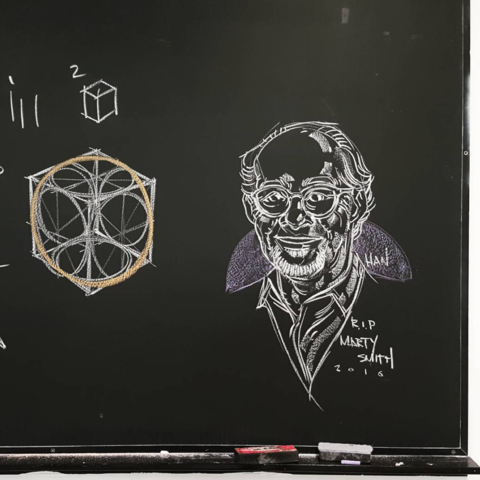 2
HAN
R.I.P
MARTY
SMITH
2016